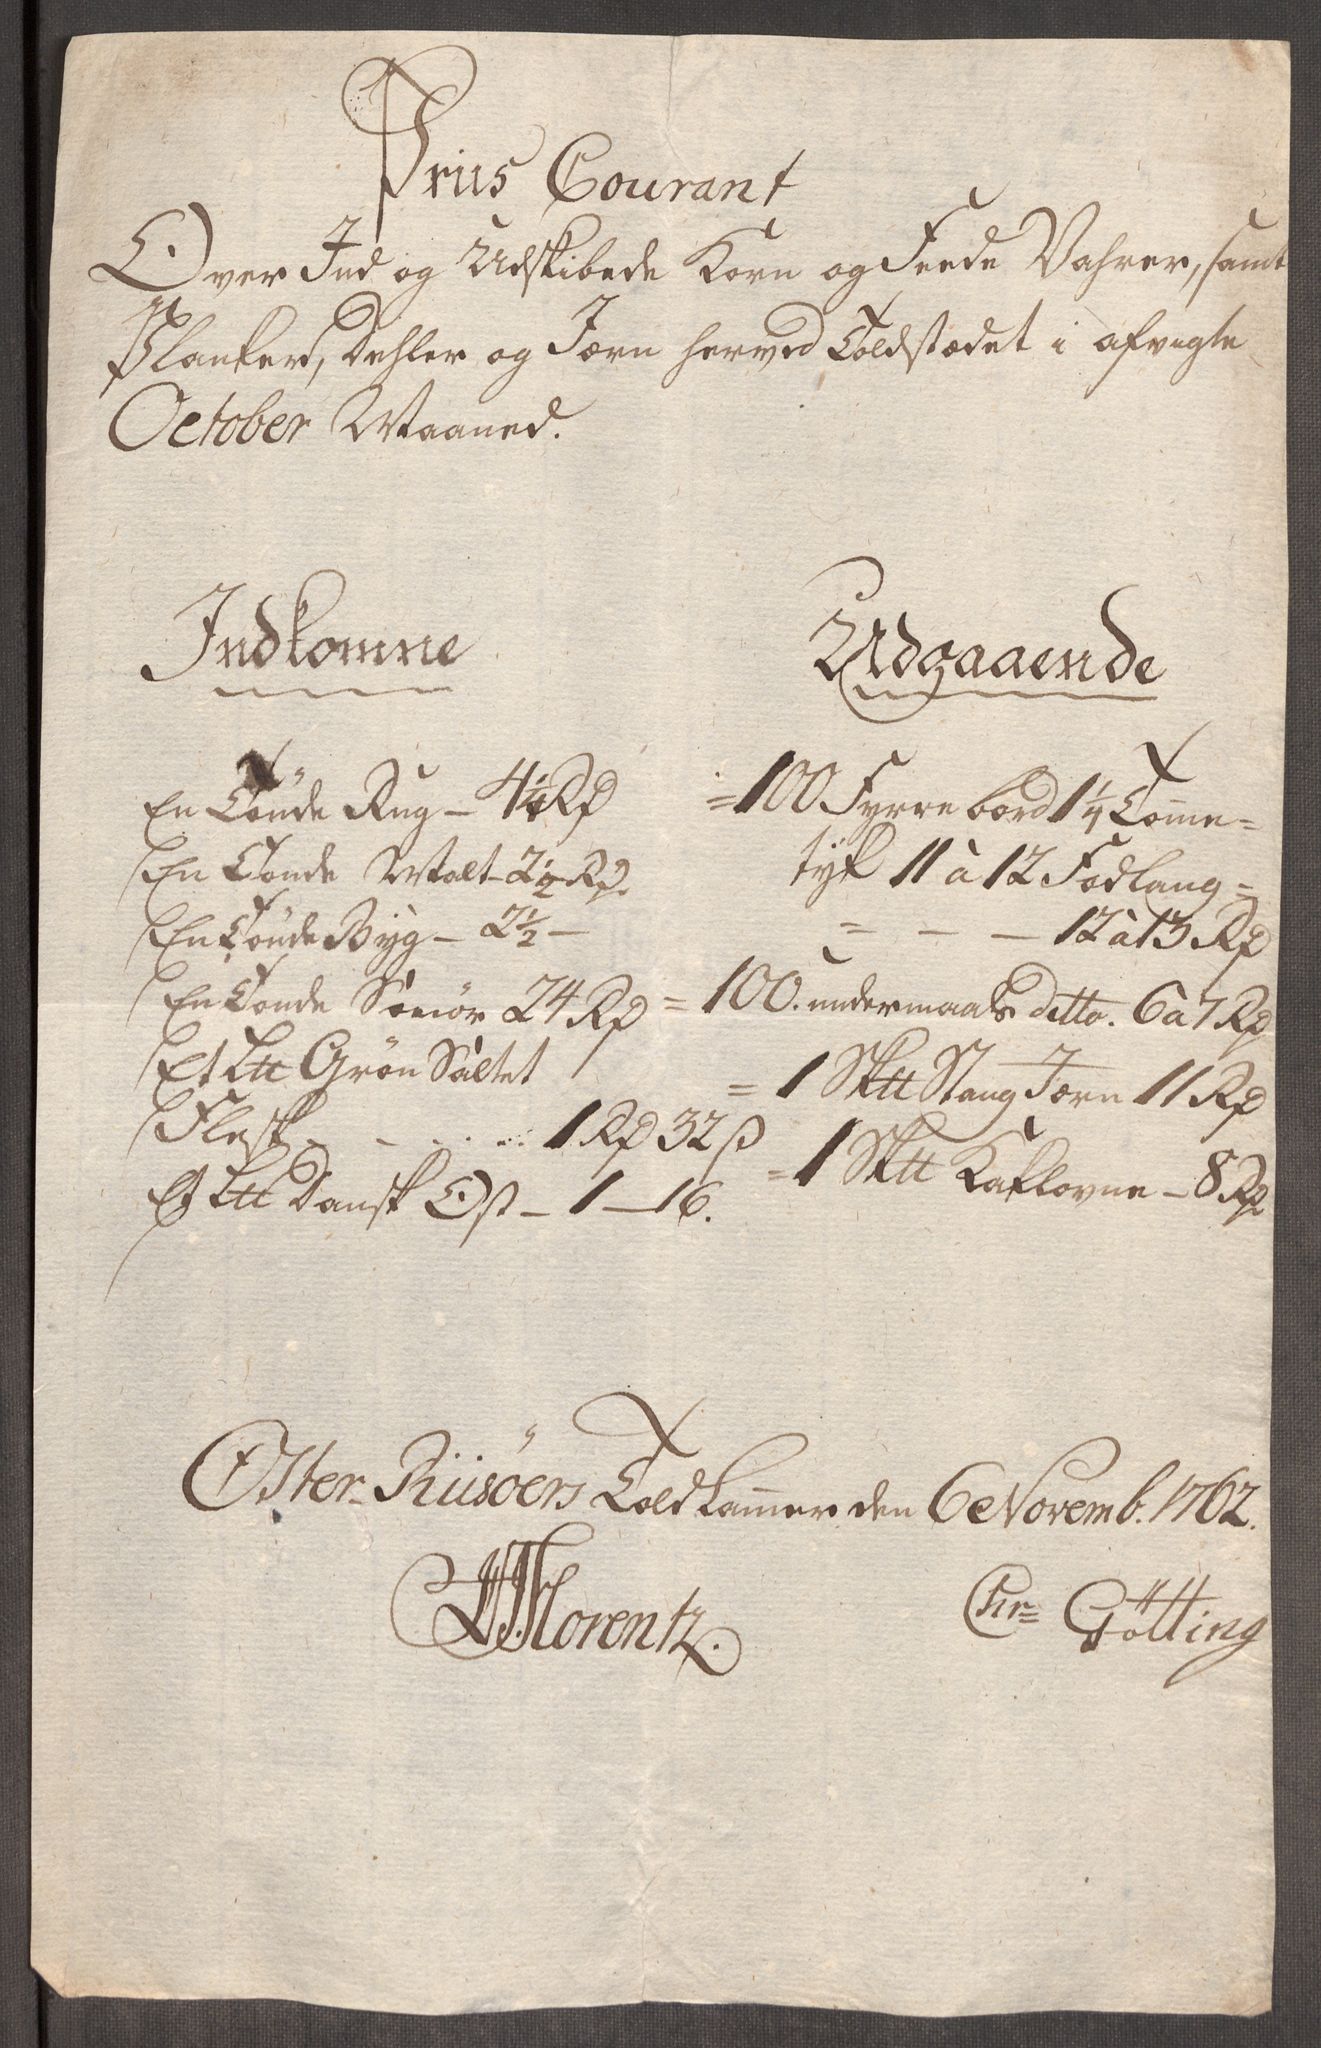 Priis Courant
Over Ind og Udskibede Korn og Feede Vahrer, samt
Planker, Dehler og Jern herved Toldstædet i afvigte
October Maaned.
Indkomne
En Tönde Rug - 4 1/4 Rd
En Tönde Malt - 2 1/2 Rd
En Tönde Byg - 2 1/2 -
En Tönde Smör 24 Rd
Et Ltt Grön Saltet
Flesk - - - - 1 Rd 32 ß
Et Ltt Dansk Ost - 1 - 16.
Udgaaende
= 100 Fyrre bord 1 1/4 Tom̄e=
tyk 11 à 12 Fod lang =
= - - 12 à 13 Rd
= 100. undermaals ditto. 6 à 7 Rd
= 1 Sktt Stang Jern 11 Rd
= 1 Sktt Kaklovne - 8 Rd
Öster-Riisöers Toldkam̄er den 6 Novemb. 1762.
Florentz.
Chr= Götting